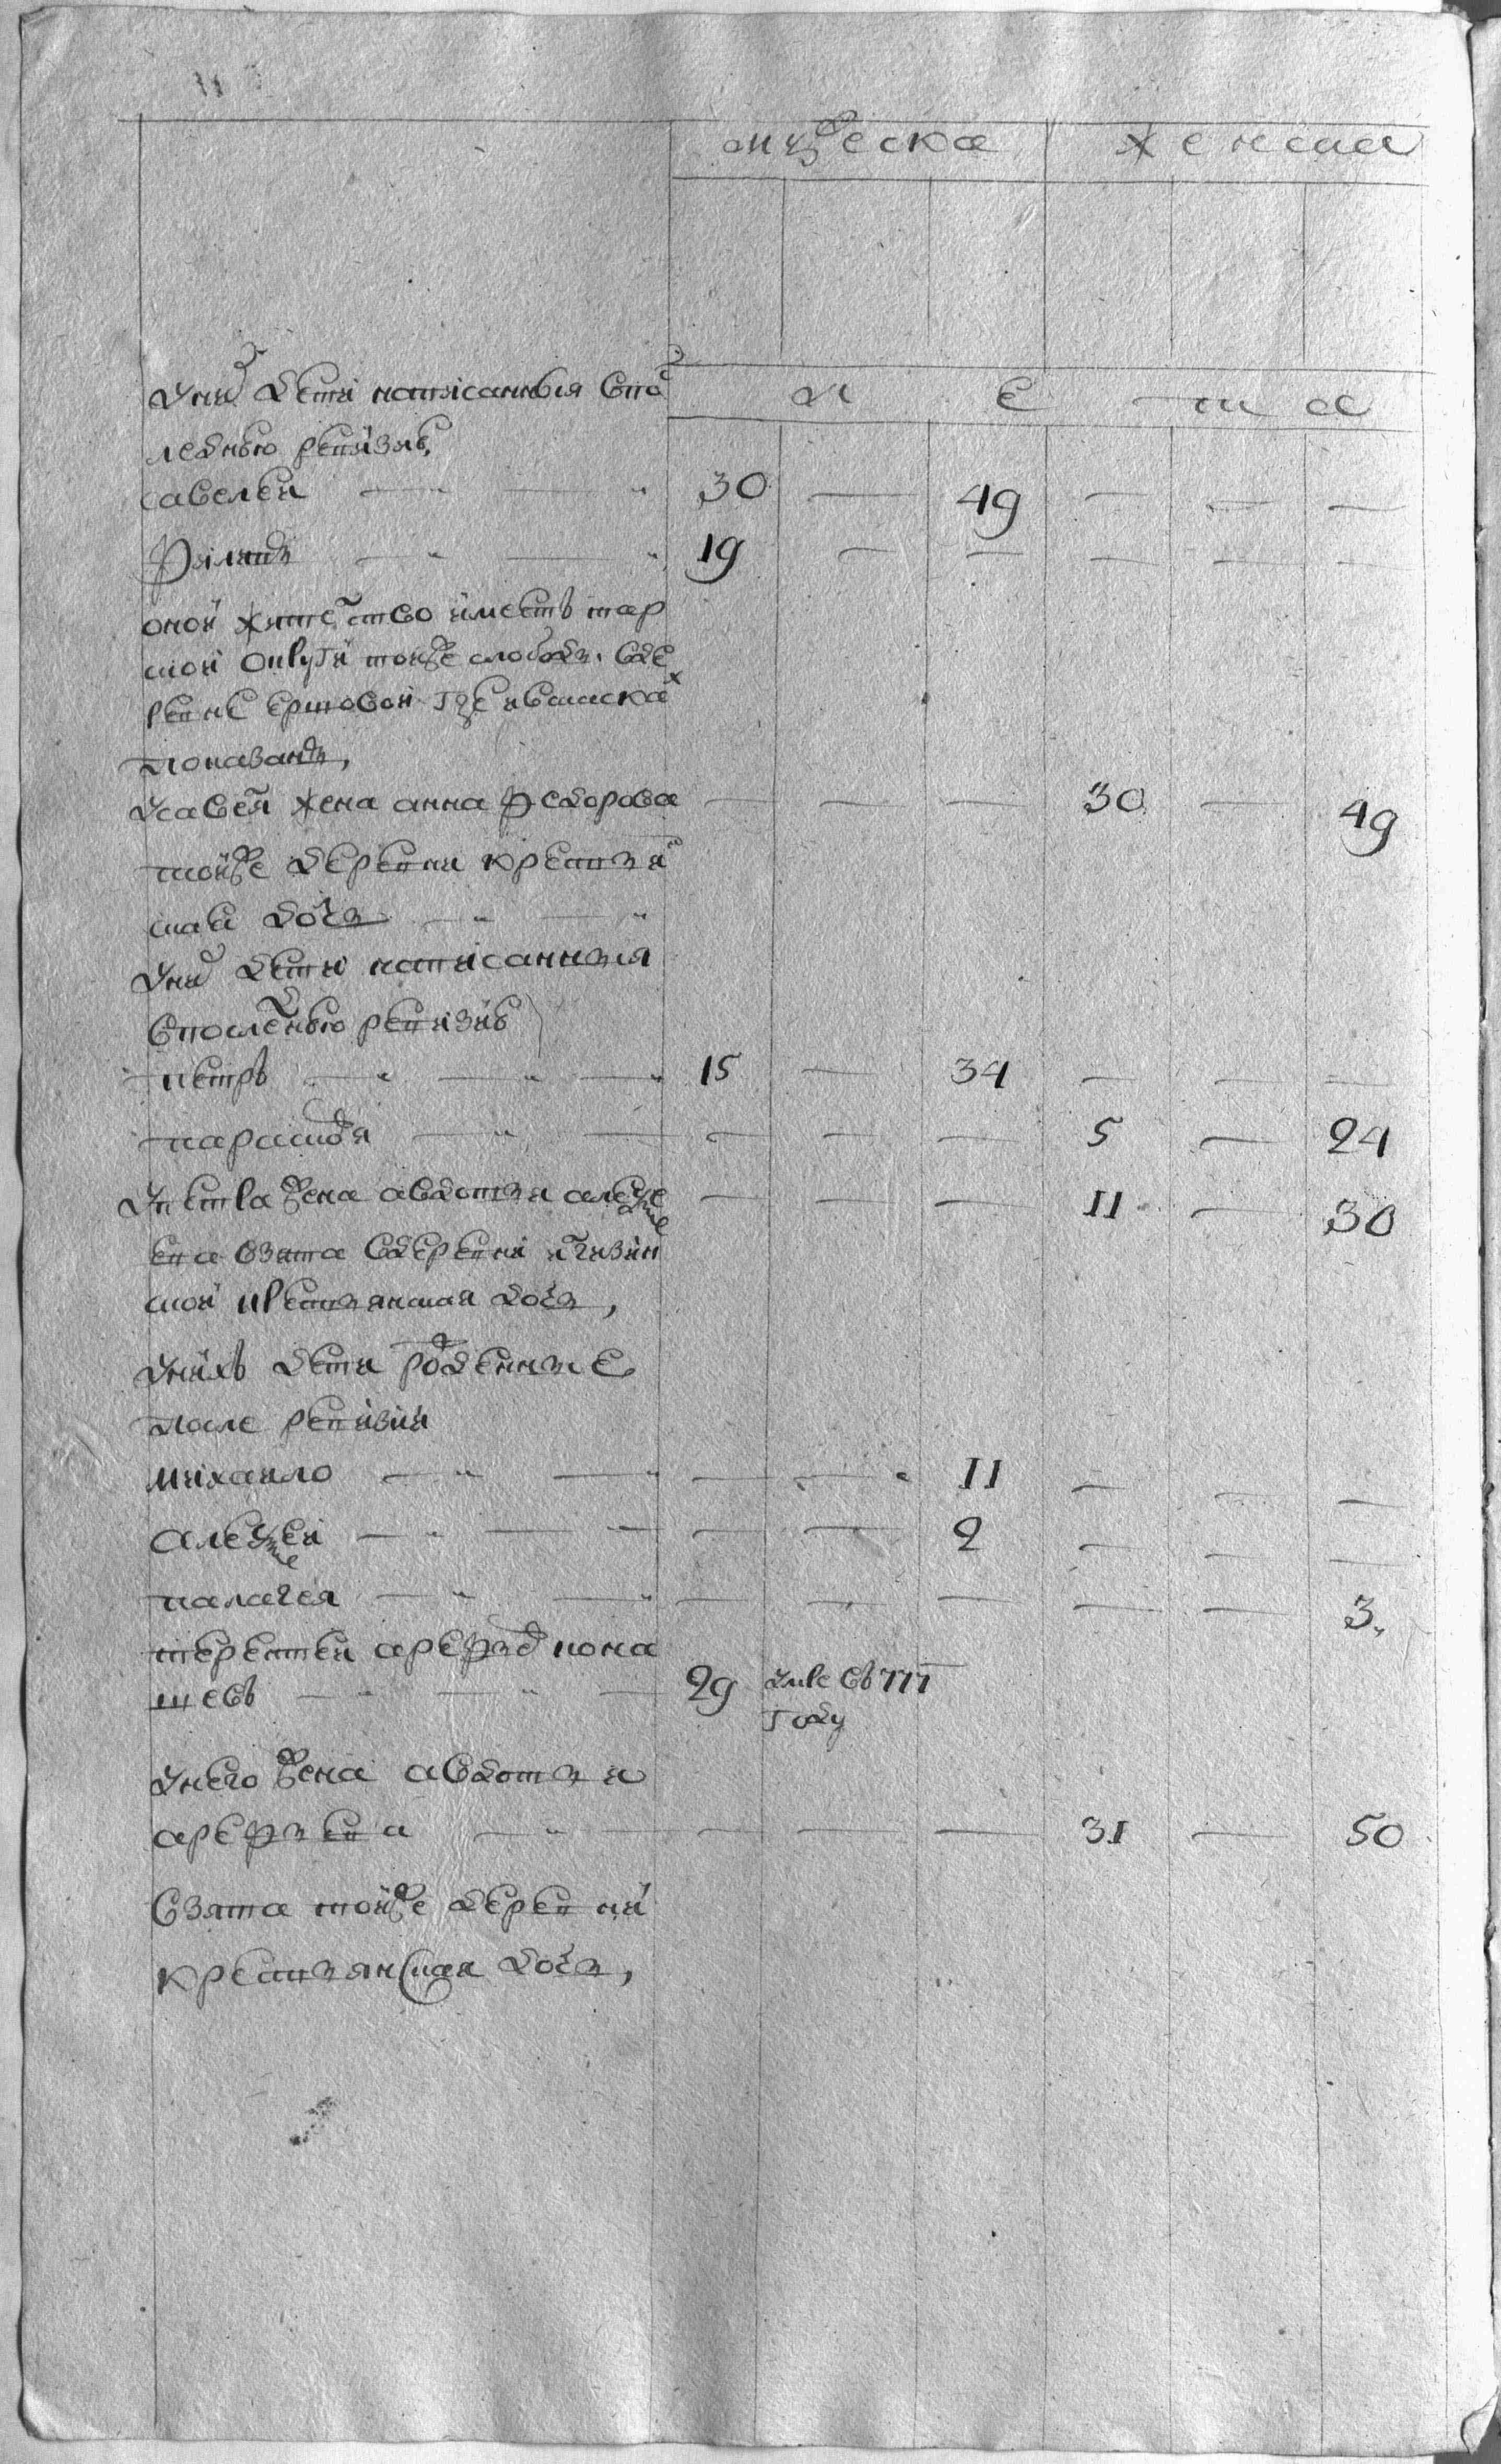 мужеска женска
л е т а
у них дети написанныя в по
следнею ревизию
савелеи 30 49
филипъ 19
оной жителство имеетъ тар
ской округи тояже слободы в де
ревне ершовой где в сказках
показанъ,
у савелья жена анна федорова 30 49
тояже деревни крестьян
ская дочь
у них дети написанныя
в последнею ревизию
петръ 15 34
парасковья 5 24
у петра жена авдотья алексе 11 30
ева взята в деревни
ской крестьянская дочь,
у нихъ дети рожденные
после ревизии
михаило 11
алексеи 2
палагея 3
терентеи арефьев пона
шевъ 29 умре въ 777
году
у него жена авдотья
арефьева 31 50
взята тояже деревни
крестьянская дочь,